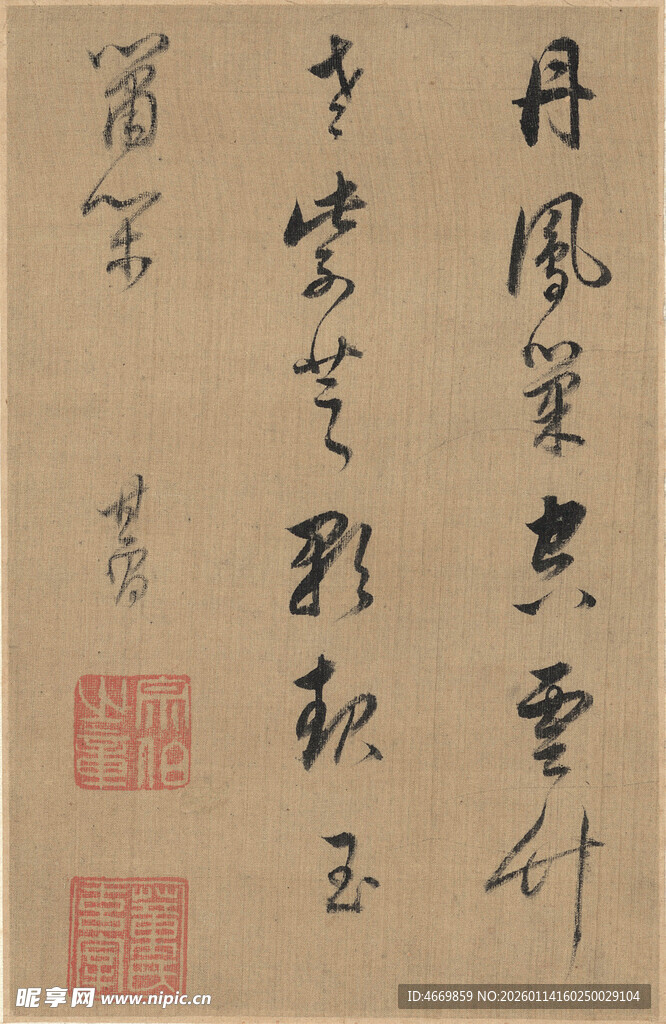 丹鳳巢空雲竹
老紫芝玉
簫
其昌
宗伯之章
昵享网 www.nipic.cn
ID:4669859 NO:20260114160250029104